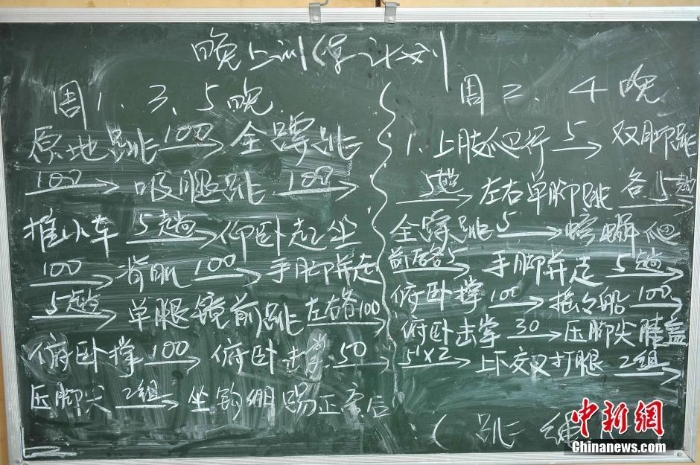 晚上训练计划
周1.3.5晚
原地跳 100 → 全蹲跳
100 → 吸腿跳 100 →
推小车 5趟 → 仰卧起坐
100 → 背肌 100 → 手脚并走
5趟 → 单腿镜前跳 左右各100
俯卧撑 100 → 俯卧击掌 50
压脚尖 2组 → 坐钩绷踢正旁后
周2.4晚
1.上肢爬行 5 → 双脚跳
5趟 → 左右单脚跳 各5趟
全蹲跳 5 → 螃蟹爬
前后各5 → 手脚并走 5趟
俯卧撑 100 → 拖船 100
俯卧击掌 30 → 压脚尖膝盖
5'×2 → 上下交叉打腿 2组
(跳绳
中新网
Chinanews.com